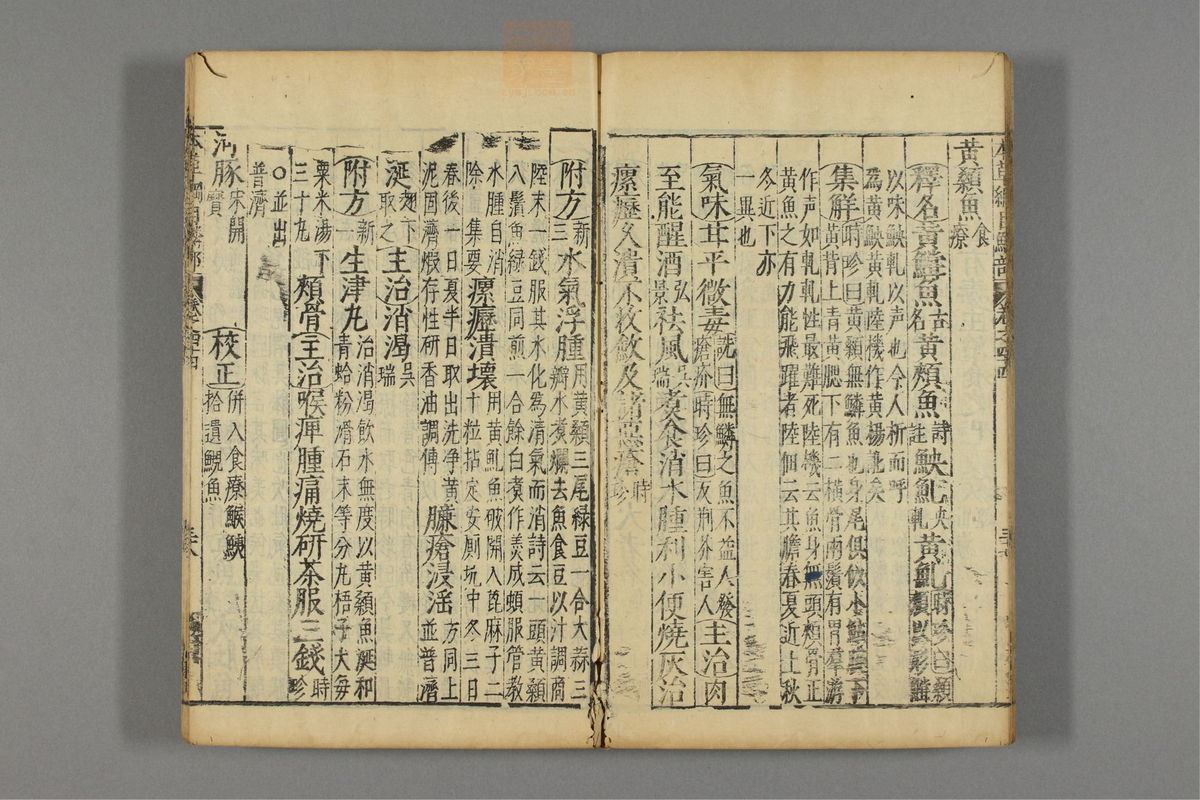 黃顙魚食療
釋名黃鱨魚古名黃頰魚詩註鮧魠央軋黃魠時珍曰顙
以味鮧軋以声也今人析而呼
為黃鮧黃軋陸機作黃揚訛矣
集解時珍曰黃顙無鱗魚也身尾俱似小
黃背上青黃腮下有二橫骨兩鬚有胃群游
作声如軋軋性最難死陸機云魚身無頭頰骨正
黃魚之有力能飛躍者陸佃云其膽春夏近上秋
冬近下亦
一異也
氣味甘平微毒詵曰無鱗之魚不益人發瘡疥時珍曰反荊芥害人主治肉
至能醒酒弘景祛風吳瑞煮食消水腫利小便燒灰治
瘰癧久潰不收斂及諸惡瘡時珍
附方新三水氣浮腫用黃顙三尾綠豆一合大蒜三瓣水煮爛去魚食豆以汁調商
陸末一錢服其水化為清氣而消詩云一頭黃顙
八鬚魚綠豆同煎一合餘白煮作羹成頓服管教
水腫自消
除集要瘰癧潰壞用黃魠魚破開入蓖麻子二十粒扎定安厠坑中冬三日
春後一日夏半日取出洗净黃
泥固濟煅存性研香油調傅臁瘡浸淫方同上並普濟
涎翅下取之主治消渴吳瑞
附方新一生津丸治消渴飲水無度以黃顙魚涎和青蛤粉滑石末等分丸梧子大每
粟米湯下
三十丸頰骨主治喉痺腫痛燒研茶服三錢時珍
○並出
普濟
河豚宋開寶校正併入食療鯸鮧拾遺䲅魚